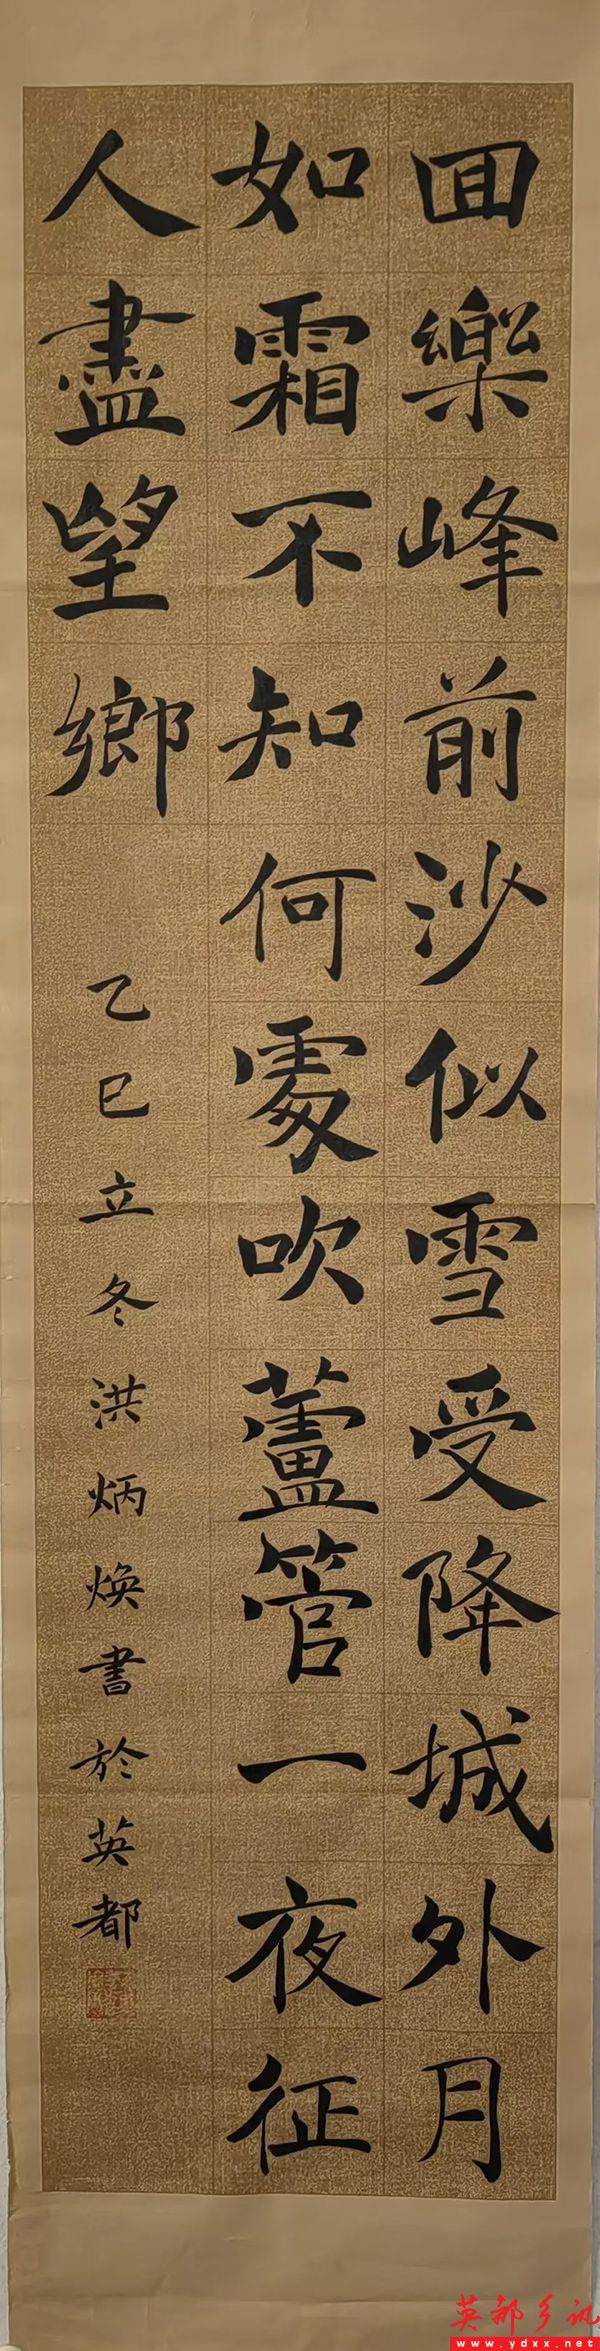 回樂峰前沙似雪受降城外月
如霜不知何處吹蘆管一夜征
人盡望鄉
乙巳立冬洪炳煥書於英都
英都乡讯
www.ydxx.net